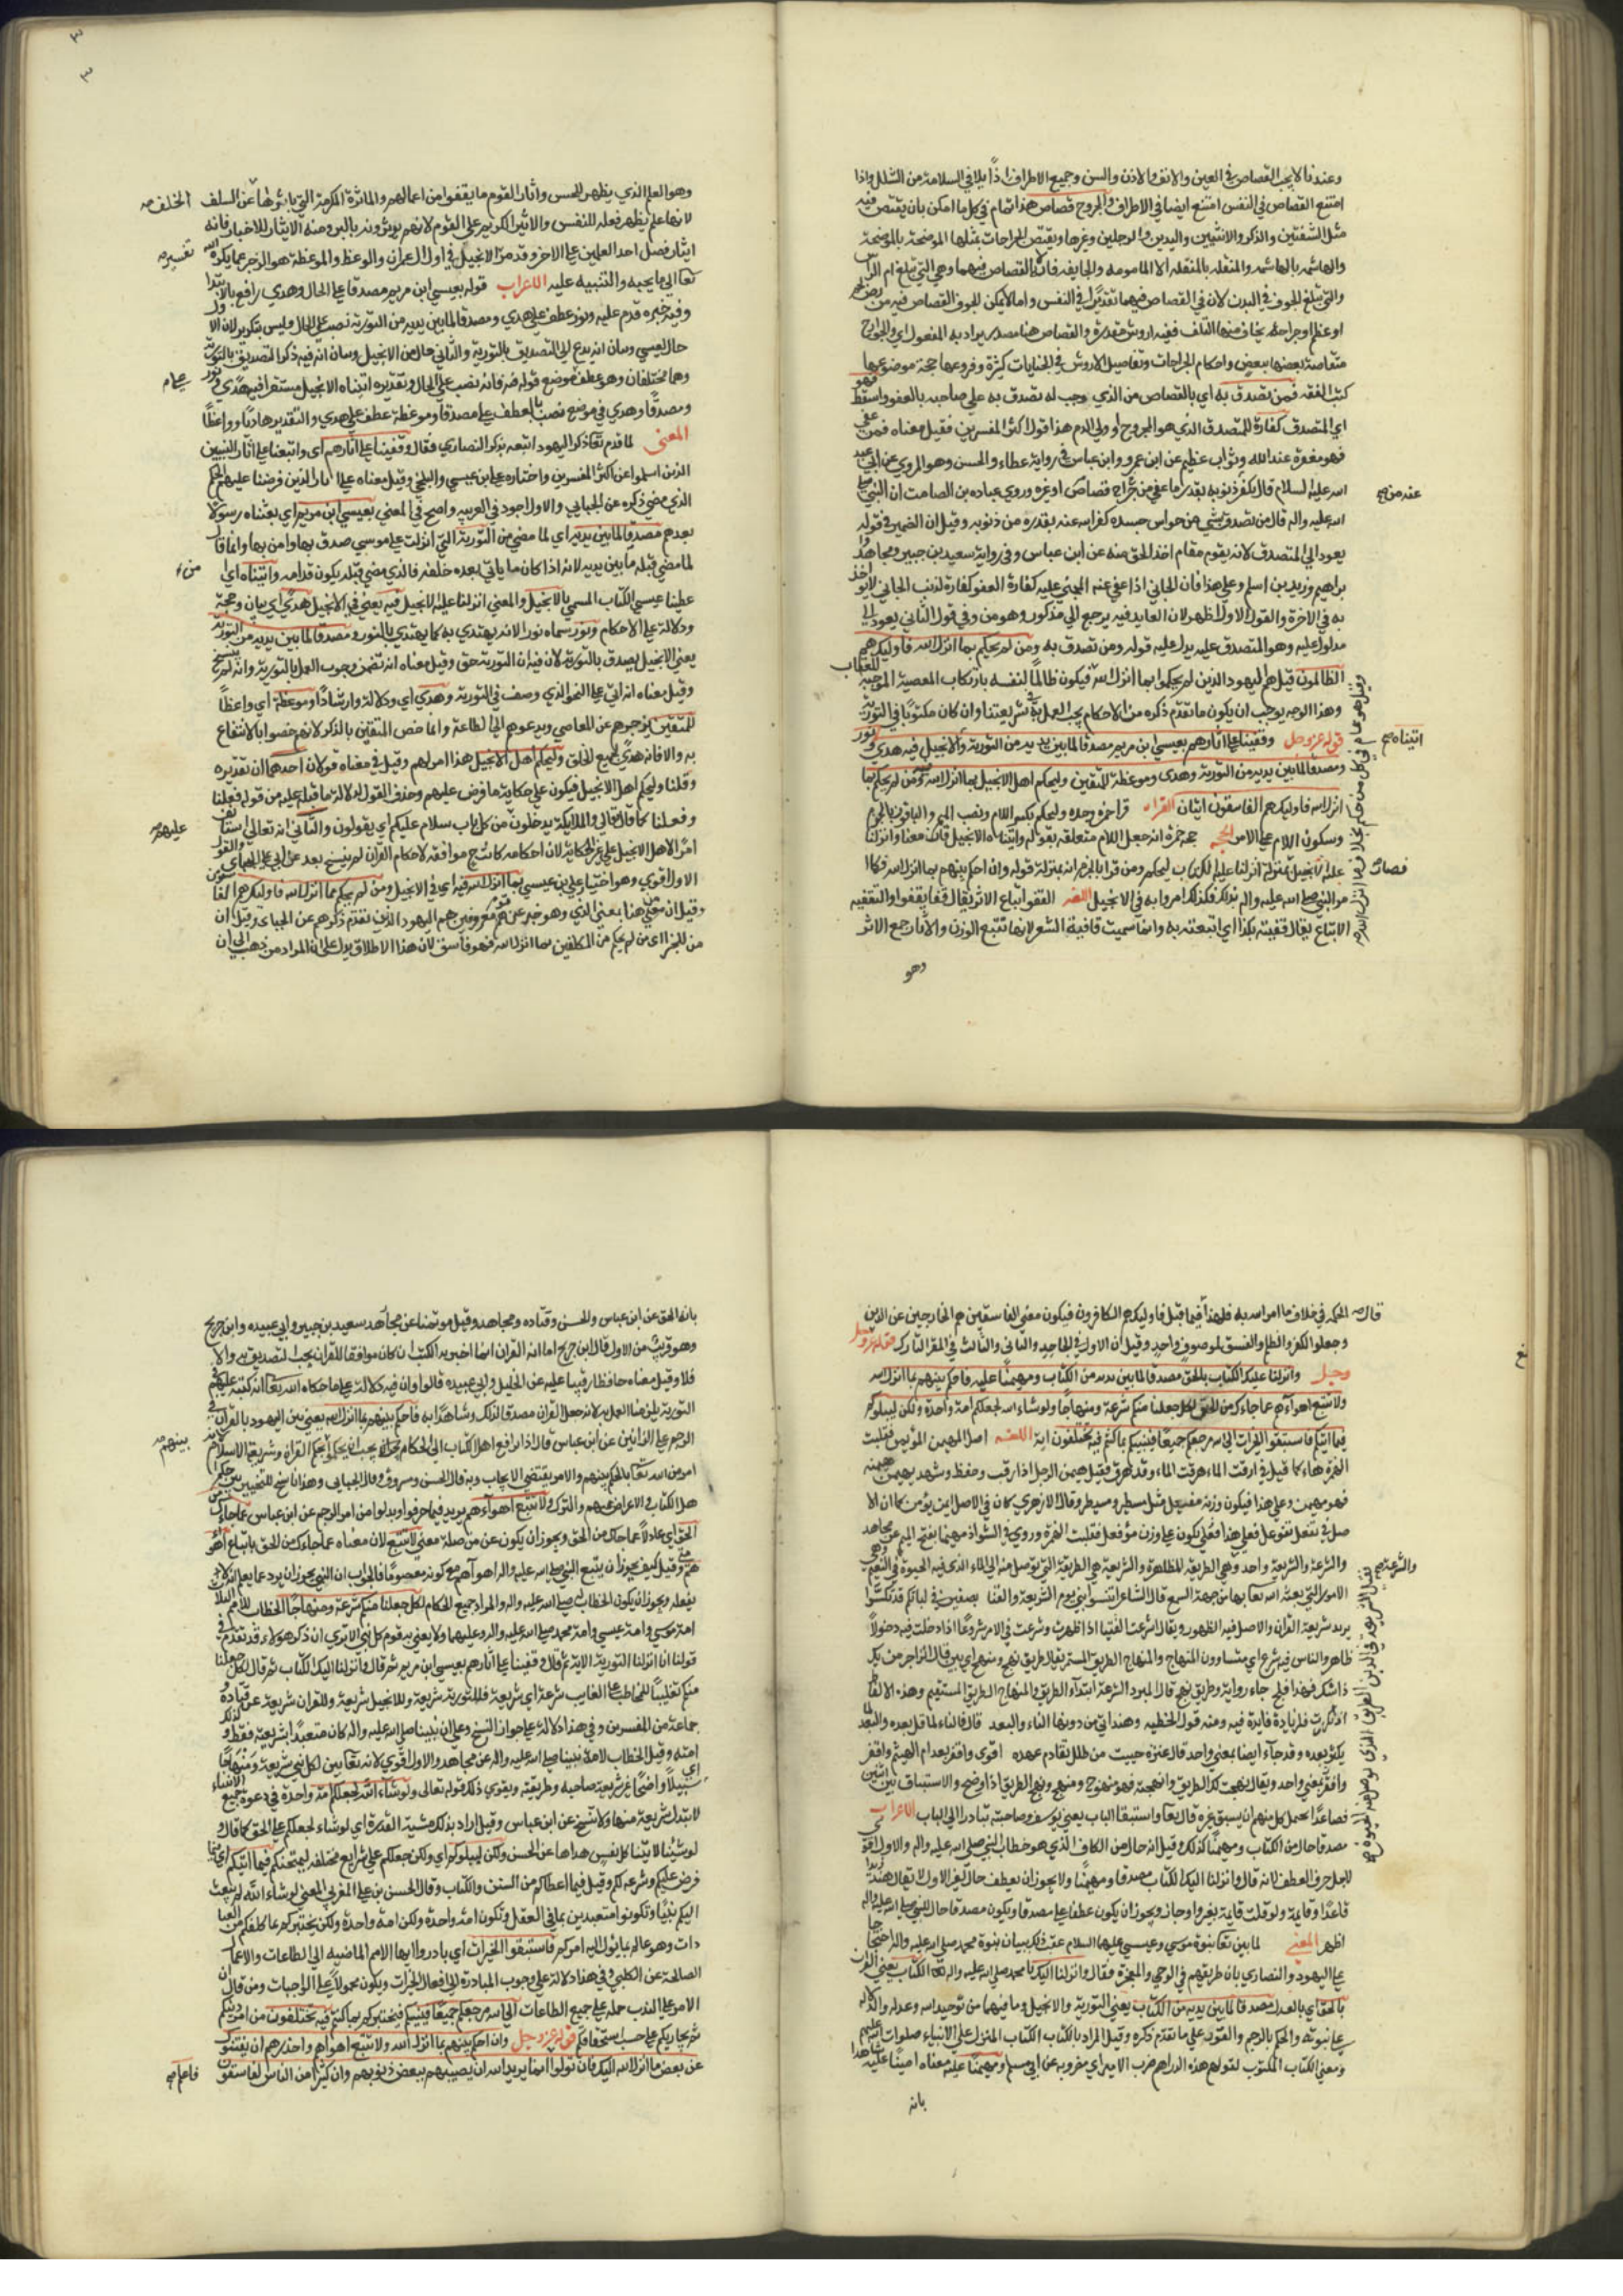 وعندنا لا يجب القصاص في العين والانف والاذن والسن وجميع الاطراف اذا بلا في السلامة من الشلل واذا
امتنع القصاص في النفس امتنع ايضا في الاطراف والجروح قصاص هذا تمام في كل ما امكن بان يقتص فيه
مثل الشفتين والذكر والانثيين واليدين والرجلين وغيرها ويقتص الجراحات بمثلها الموضحة بالموضحة
والهاشمه بالهاشمه والمنقله بالمنقله الا المامومه والجايفه فانه لا قصاص فيهما وهي التي تبلغ ام الراس
والتي تبلغ الجوف في البدن لان في القصاص فيهما تغديرا في النفس واما لا يمكن القصاص فيه من
او عظم او جراحة يخاف منها التلف ففيه اروش مقدرة والقصاص هنا مصدر يراد به المفعول اي والجروح
متقاصة بعضها ببعض واحكام الجراحات وتفاصيل الاروش في الجنايات كثيرة وفروعها جمة موضوعها
كتب الفقه فمن تصدق به اي بالقصاص من الذي وجب له تصدق به على صاحبه بالعفو واسقط فهو
اي المتصدق كفارة للمتصدق الذي هو المجروح او ولي الدم هذا قول اكثر المفسرين فقيل معناه فمن عفى
فهو مغفرة عند الله وثواب عظيم عن ابن عمرو وابن عباس في رواية عطاء والحسن وهو المروي عن ابي عبد
الله عليه السلام قال يكفر ذنوبه بقدر ما عفي من جراح قصاص او غيره وروي عباده بن الصامت ان النبي صلى
عنه من
الله عليه واله قال من تصدق بشي من حواس جسده كفر الله عنه بقدره من ذنوبه وقيل ان الضمير في قوله
يعود الي المتصدق لانه يقوم مقام اخذ الحق منه عن ابن عباس وفي رواية سعيد بن جبير ومجاهد وا
براهيم وزيد بن اسلم وعلى هذا فان الجاني اذا عفي عنه المجني عليه كفارة العفو كفارة لذنب الجاني لا يواخذ
به في الاخرة والقول الاول اظهر لان العايد فيه يرجع الي مذكور وهو من وفي قول الثاني يعود الي
مدلول عليه وهو المتصدق عليه يدل عليه قوله ومن تصدق به ومن لم يحكم بما انزل الله فاوليك هم
الظالمون قيل هم اليهود الذين لم يحكموا بما انزل الله فيكون ظالما لنفسه بارتكاب المعصية الموجبة للعقاب
وهذا الوجه يوجب ان يكون ما تقدم ذكره من الاحكام يجب العمل به في شريعتنا وان كان مكتوبا في التورية
قوله عز وجل وقفينا على اثارهم بعيسى ابن مريم مصدقا لما بين يديه من التورية واتيناه الانجيل فيه هدي ونور
اتيناه
ومصدقا لما بين يديه من التورية وهدى وموعظة للمتقين وليحكم اهل الانجيل بما انزل الله فيه ومن لم يحكم بما
انزل الله فاوليك هم الفاسقون ايتان القراة قرا حمزة وحده وليحكم بكسر اللام ونصب الميم والباقون بالجزم
وسكون اللام على الامر الحجة حجة حمزة انه جعل اللام متعلقه بقوله واتيناه الانجيل فان معناه وانزلنا
فصار
عليه الانجيل بمنزلة انزلنا عليك الكتاب ليحكم ومن قرا بالجزم انه بمنزلة قوله وان احكم بينهم بما انزل الله فكما
مر النبي صلى الله عليه واله بذلك فكذلك امروا به في الانجيل اللغه القفو اتباع الاثر يقال قفا يقفوا والتقفيه
الاتباع يقال قفيته بكذا اي اتبعته به وانما سميت قافية الشعر لانها تتبع الوزن والاثار جمع الاثر
وهو
وهو العلم الذي يظهر للحس واثار القوم ما يقفوا من اعمالهم والماثرة المكرمة التي ياثرها عن السلف
الخلف
لانها علم يظهر فعله للنفس والاثير الكريم على القوم لانهم يوثرونه بالبر ومنه الايثار للاختيار فانه
ايثار فضل احد العلمين على الاخر وقد مر الانجيل في اول ال عمران والوعظ والموعظة هو الزجر عما يكرهه الله
تفسير
تعالى الي ما يحبه والتنبيه عليه الاعراب قوله بعيسى ابن مريم مصدقا على الحال وهدي رافع بالابتدا
وفيه خبره قدم عليه ونور عطف على هدي ومصدقا لما بين يديه من التورية نصب على الحال وليس بتكرير لان الاول
حال لعيسى وبيان انه يدعو الي التصديق بالتورية والثاني حال من الانجيل وبيان انه فيه ذكر التصديق بالتورية
وهما مختلفان وهو عطف على موضع قوله فيه فانه نصب على الحال وتقديره اتيناه الانجيل مستقرا فيه هدي ونور
ومصدقا وهدي في موضع نصب بالعطف على مصدقا وموعظة عطف على هدي والتقدير هاديا وواعظا
المعنى لما قدم تعالى ذكر اليهود اتبعه بذكر النصاري فقال وقفينا على اثارهم اي واتبعنا على اثار النبيين
الذين اسلموا عن اكثر المفسرين واختاره علي بن عيسي والبلخي وقيل معناه على اثار الذين فرضنا عليهم الحكم
الذي مضي ذكره عن الجبايي والاول اجود في العربيه واصح في المعني بعيسي ابن مريم اي بعثناه رسولا
بعدهم مصدقا لما بين يديه اي لما مضي من التورية التي انزلت على موسي صدق بها وامن بها وانما قال
لما مضي قبله ما بين يديه لانه اذا كان ما ياتي بعده خلفه فالذي مضي قبله يكون قدامه واتيناه اي
عطينا عيسي الكتاب المسمي بالانجيل والمعني انزلنا عليه الانجيل فيه يعني في الانجيل هدي اي بيان وحجة
ودلالة على الاحكام ونور سماه نورا لانه يهتدي به كما يهتدي بالنور ومصدقا لما بين يديه من التورية
يعني الانجيل يصدق بالتورية لان فيه ان التورية حق وقيل معناه انه تضمن وجوب العمل بالتورية وانه لم ينسخ
وقيل معناه انه اتي على النحو الذي وصف في التورية وهدي اي ودلالة وارشادا وموعظة اي واعظا
للمتقين يزجرهم عن المعاصي ويدعوهم الي الطاعة وانما خص المتقين بالذكر لانهم خصوا بالانتفاع
به والا فانه هدي لجميع الخلق وليحكم اهل الانجيل هذا امر لهم وقيل في معناه قولان احدهما ان تقديره
وقلنا وليحكم اهل الانجيل فيكون على حكاية ما فرض عليهم وحذف القول لدلالة ما قبله عليه من قوله فعلنا
وفعلنا كما قال تعالي والملايكة يدخلون من كل باب سلام عليكم اي يقولون والثاني انه تعالى استانف
عليهم
امر لاهل الانجيل على غير الحكاية لان احكامه كانت ح موافقه لاحكام القران لم ينسخ بعد عن ابي علي الجبايي والقول
الاول اقوي وهو اختيار علي بن عيسي بما انزل الله فيه اي في الانجيل ومن لم يحكم بما انزل الله فاوليك هم الفاسقون
وقيل ان من هنا بمعني الذي وهو خبر عن قوم معروفين هم اليهود الذين تقدم ذكرهم عن الجبايي وقيل ان
من للجزا اي من لم يحكم من المكلفين بما انزل الله فهو فاسق لان هذا الاطلاق يدل على ان المراد من ذهب الي ان
الحكم في خلاف ما امر الله به فلهذا فيما قبل فاوليك هم الكافرون فيكون معني الفاسقين هم الخارجين عن الدين
قال
وجعلوا الكفر والظلم والفسق لموصوف واحد وقيل ان الاول في الجاحد والثاني والثالث في المقر التارك قوله عز
وجل وانزلنا عليك الكتاب بالحق مصدقا لما بين يديه من الكتاب ومهيمنا عليه فاحكم بينهم بما انزل الله
ولا تتبع اهوآءهم عما جاءك من الحق لكل جعلنا منكم شرعة ومنهاجا ولو شاء الله لجعلكم امة واحدة ولكن ليبلوكم
فيما اتيكم فاستبقوا الخيرات الي الله مرجعكم جميعا فينبيكم بما كنتم فيه تختلفون اية اللغه اصل المهيمن المؤيمن فقلبت
الهمزة هاء كما قيل في ارقت الماء هرقت الماء وقد هرق فقيل هيمن الرجل اذا رقب وحفظ وشهد يهيمن هيمنه
فهو مهيمن وعلى هذا فيكون وزنه مفيعل مثل مسيطر ومبيطر وقال الازهري كان في الاصل ايمن يؤيمن كما ان الا
والشرعة والشريعة واحد وهي الطريقة الظاهرة والشريعة هي الطريقة التي توصل منه الي الماء الذي فيه الحيوة
الامور التي بعث الله تعالى بها من جهة السمع قال الشاعر اتنسوا بني يوم الشريعة والقنا بصفين في لباتكم قد تكسرا
يريد شريعة القران والاصل فيه الظهور ويقال اشرعت القنا اذا اظهرت وشرعت في الامر شروعا اذا دخلت فيه دخولا
ظاهر والناس فيه شرع اي متساوون المنهاج والمنهاج الطريق المستمر يقال طريق نهج ومنهج اي بين قال الراجز من يك
ذا شك فهذا فلج ماء رواء وطريق نهج قال المبرد الشرعة ابتداء الطريق والمنهاج الطريق المستقيم وهذه الالفاظ
اذا تكررت فلزيادة فايدة فيه ومنه قول الحطيه وهند اتي من دونها الناء والبعد قال فالناء لما قل بعده والبعد لما
يكثر بعده وقد جاء ايضا بمعني واحد قال عنتره حييت من طلل تقادم عهده اقوى واقفر بعد ام الهيثم واقفر
واقفر بمعني واحد ويقال نهجت لك الطريق وانهجته فهو منهوج ومنهج ونهج الطريق اذا وضح والاستباق بين اثنين
فصاعدا يحمل كل منهم ان يسبق غيره قال تعالى واستبقا الباب يعني يوسف وصاحبته تبادرا الي الباب الاعراب
مصدقا حال من الكتاب ومهيمنا كذلك وقيل انه حال من الكاف الذي هو خطاب النبي صلى الله عليه واله والاول اقوي
لاجل حرف العطف لانه قال وانزلنا اليك الكتاب مصدقا ومهيمنا ولا يجوز ان يعطف حال لغير الاول لا تقول ضربت هند
قاعدا وقايمة ولو قلت قايمة بغير واو جاز ويجوز ان يكون عطفا على مصدقا ويكون مصدقا حالا للنبي صلى الله عليه واله
اظهر المعني لما بين تعالى نبوة موسي وعيسي عليهما السلام عقب ذلك ببيان نبوة محمد صلى الله عليه واله احتجاجا
على اليهود والنصاري بان طريقهم في الوحي والمعجزة فقال وانزلنا اليك يا محمد صلى الله عليه واله الكتاب يعني القران
بالحق اي بالعدل مصدقا لما بين يديه من الكتاب يعني التورية والانجيل وما فيها من توحيد الله وعدله والدلالة
على نبوته والحكم بالرجم والقود على ما تقدم ذكره وقيل المراد بالكتاب الكتاب المنزل على الانبياء صلوات الله عليهم
ومعني الكتاب المكتوب لقولهم هذه الدراهم ضرب الامير اي مضروبه عن ابي مسلم ومهيمنا عليه معناه امينا عليه شاهدا
بانه
بانه الحق عن ابن عباس والحسن وقتاده ومجاهد وقيل موتمنا عن مجاهد سعيد بن جبير وابي عبيده وابن جريج
وهو قريب من الاول قال ابن جريج امانة القران انما اخبر به الكتب ان كان موافقا للقران يجب التصديق به والا
فلا وقيل معناه حافظا رقيبا عليه عن الخليل وابي عبيده قالوا وان فيه دلالة على ما حكاه الله تعالى انه كتبه عليهم في
التورية يلزمنا العمل به لانه جعل القران مصدقا لذلك وشاهدا به فاحكم بينهم بما انزل الله يعني بين اليهود بالقران في
الرجم على الزانين عن ابن عباس قال اذا رافع اهل الكتاب الي الحكام يجب ان يحكموا بحكم القران وشريعة الاسلام
بينهم
امر من الله تعالى بالحكم بينهم والامر يقتضي الايجاب وبه قال الحسن ومسروق وقال الجبايي وهذا ناسخ للتخيير بين حكم ا
هل الكتاب في الاعراض عنهم والترك ولا تتبع اهوآءهم يريد فيما حرفوا وبدلوا من امر الرجم عن ابن عباس عما جاءك من
الحق اي عادلا عما جاك من الحق ويجوز ان يكون عن من صلة معني لا تتبع لان معناه عما جاءك من الحق باتباع اهوآء
هم ومتي قيل كيف يجوز ان يتبع النبي صلى الله عليه واله اهوآهم مع كونه معصوما فالجواب ان النبي يجوز ان يردع عما يعلم انه لا
يفعله ويجوز ان يكون الخطاب له صلى الله عليه واله والمراد جميع الحكام لكل جعلنا منكم شرعة ومنهاجا الخطاب للامم الثلاث
امة موسي وامة عيسي وامة محمد صلى الله عليه واله وعليهما ولا يعني به قوم كل نبي الا تري ان ذكر هولاء قد تقدم في
قولنا انا انزلنا التورية الاية ثم قال وقفينا على اثارهم بعيسي ابن مريم ثم قال وانزلنا اليك الكتاب ثم قال لكل جعلنا
منكم تغليبا للمخاطب على الغايب شرعة اي شريعة فللتورية شريعة وللانجيل شريعة وللقران شريعة عن قتادة و
جماعة من المفسرين وفي هذا دلالة على جواز النسخ وعلى ان نبينا صلى الله عليه واله كان متعبدا بشريعته فقط وكذلك
امته وقيل الخطاب لامة نبينا صلى الله عليه واله عن مجاهد والاول اقوي لانه تعالى بين لكل نبي شريعة ومنهاجا اي
سبيلا واضحا غير شريعة صاحبه وطريقته ويقوي ذلك قوله تعالى ولو شاء الله لجعلكم امة واحدة في دعوة جميع الانبياء
لا تبدل شريعة منها ولا تنسخ عن ابن عباس وقيل اراد بذلك مشية القدرة اي لو شاء لجعلكم على الحق كما قال و
لو شئنا لاتينا كل نفس هداها عن الحسن ولكن ليبلوكم اي ولكن جعلكم على شرايع مختلفه ليمتحنكم فيما اتيكم اي فيما
فرض عليكم وشرعه لكم وقيل فيما اعطاكم من السنن والكتاب وقال الحسن بن علي المغربي المعني لو شاء الله لم يبعث
اليكم نبيا وتكونوا متعبدين بما في العقل وتكون امة واحدة ولكن امة واحدة ولكن يختبركم بما كلفكم من العبا
دات وهو عالم بما يؤل اليه امركم فاستبقوا الخيرات اي بادروا ايها الامم الماضيه الي الطاعات والاعمال
الصالحة عن الكلبي وفي هذا دلالة على وجوب المبادرة الي افعال الخيرات ويكون محمولا على الواجبات ومن قال ان
الامر على الندب حمله على جميع الطاعات الي الله مرجعكم جميعا فينبيكم فيخبركم بما كنتم فيه تختلفون من امر دينكم
ثم يجازيكم على حسب استحقاقكم قوله عز وجل وان احكم بينهم بما انزل الله ولا تتبع اهواهم واحذرهم ان يفتنوك
عن بعض ما انزل الله اليك فان تولوا انما يريد الله ان يصيبهم ببعض ذنوبهم وان كثيرا من الناس لفاسقون
فاعلم